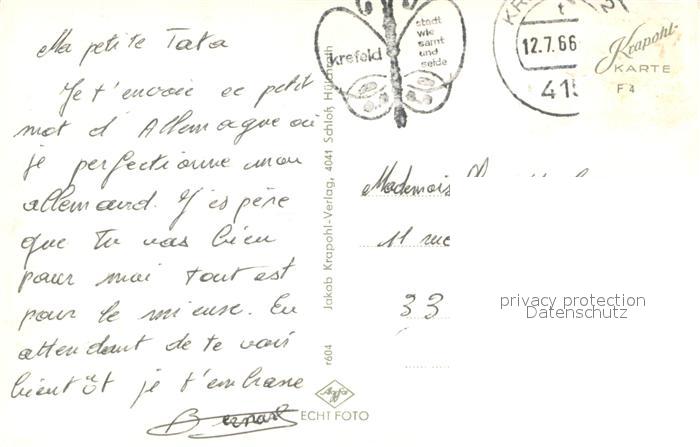 Ma petite Tata
Je t'envoie ce petit
mot d'Allemagne où
je perfectionne mon
allemand. J'espère
que tu vas bien
pour moi tout est
pour le mieux. En
attendant de te voir
bientôt je t'embrasse
Bernard
r604 Jakob Krapohl-Verlag, 4041 Schloß Hülchrath
krefeld
stadt
wie
samt
und
seide
12.7.66
415
Krapohl-
KARTE
F 4
Mademois
11 rue
33
privacy protection
Datenschutz
Agfa
ECHT FOTO